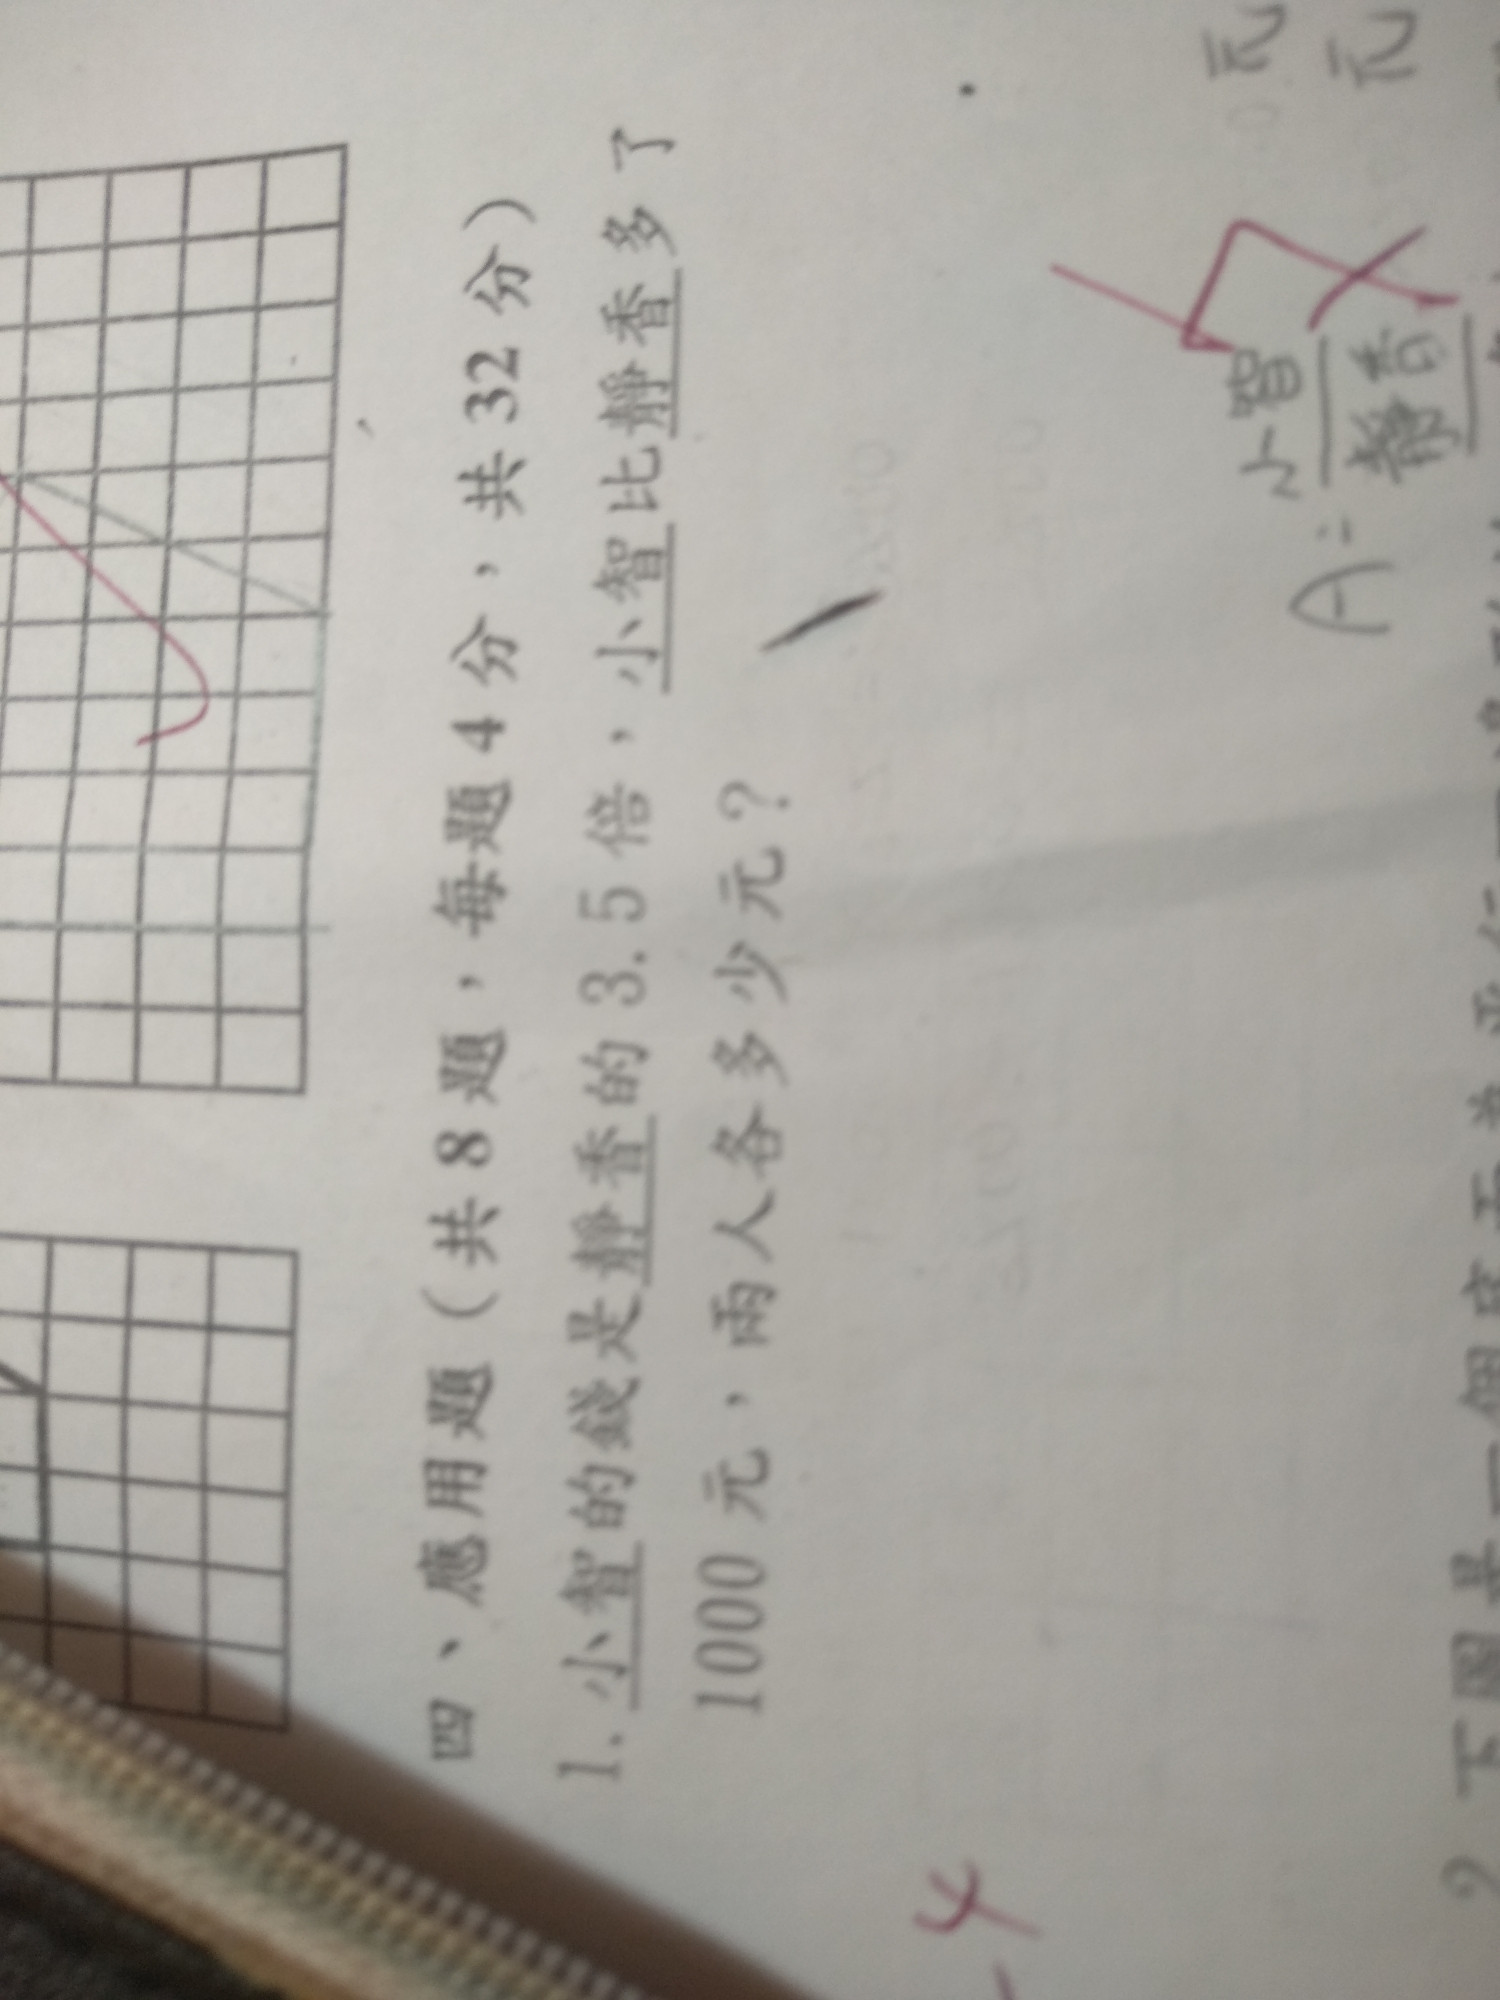 四、應用題（共 8 題，每題 4 分，共 32 分）
1. 小智的錢是靜香的 3.5 倍，小智比靜香多了
1000 元，兩人各多少元？
-4
A: 小智 元
靜香 元
2 下圖是一個底